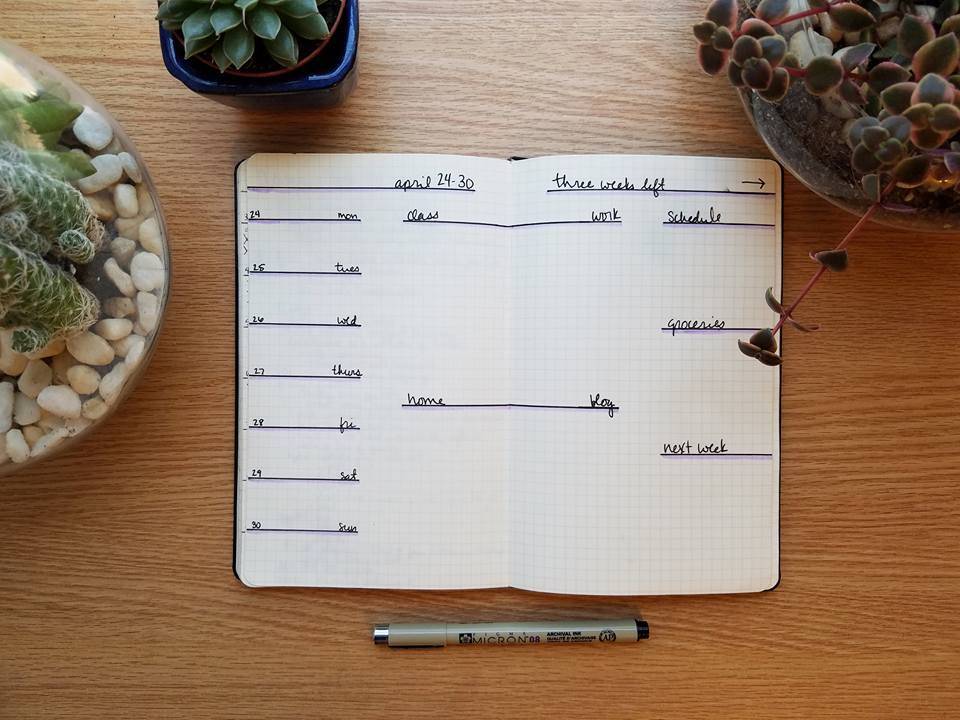 april 24-30
three weeks left →
24 mon
class
work
schedule
25 tues
26 wed
groceries
27 thurs
home
blog
28 fri
next week
29 sat
30 sun
MICRON 08
ARCHIVAL INK
QUALITÉ D'ARCHIVAGE